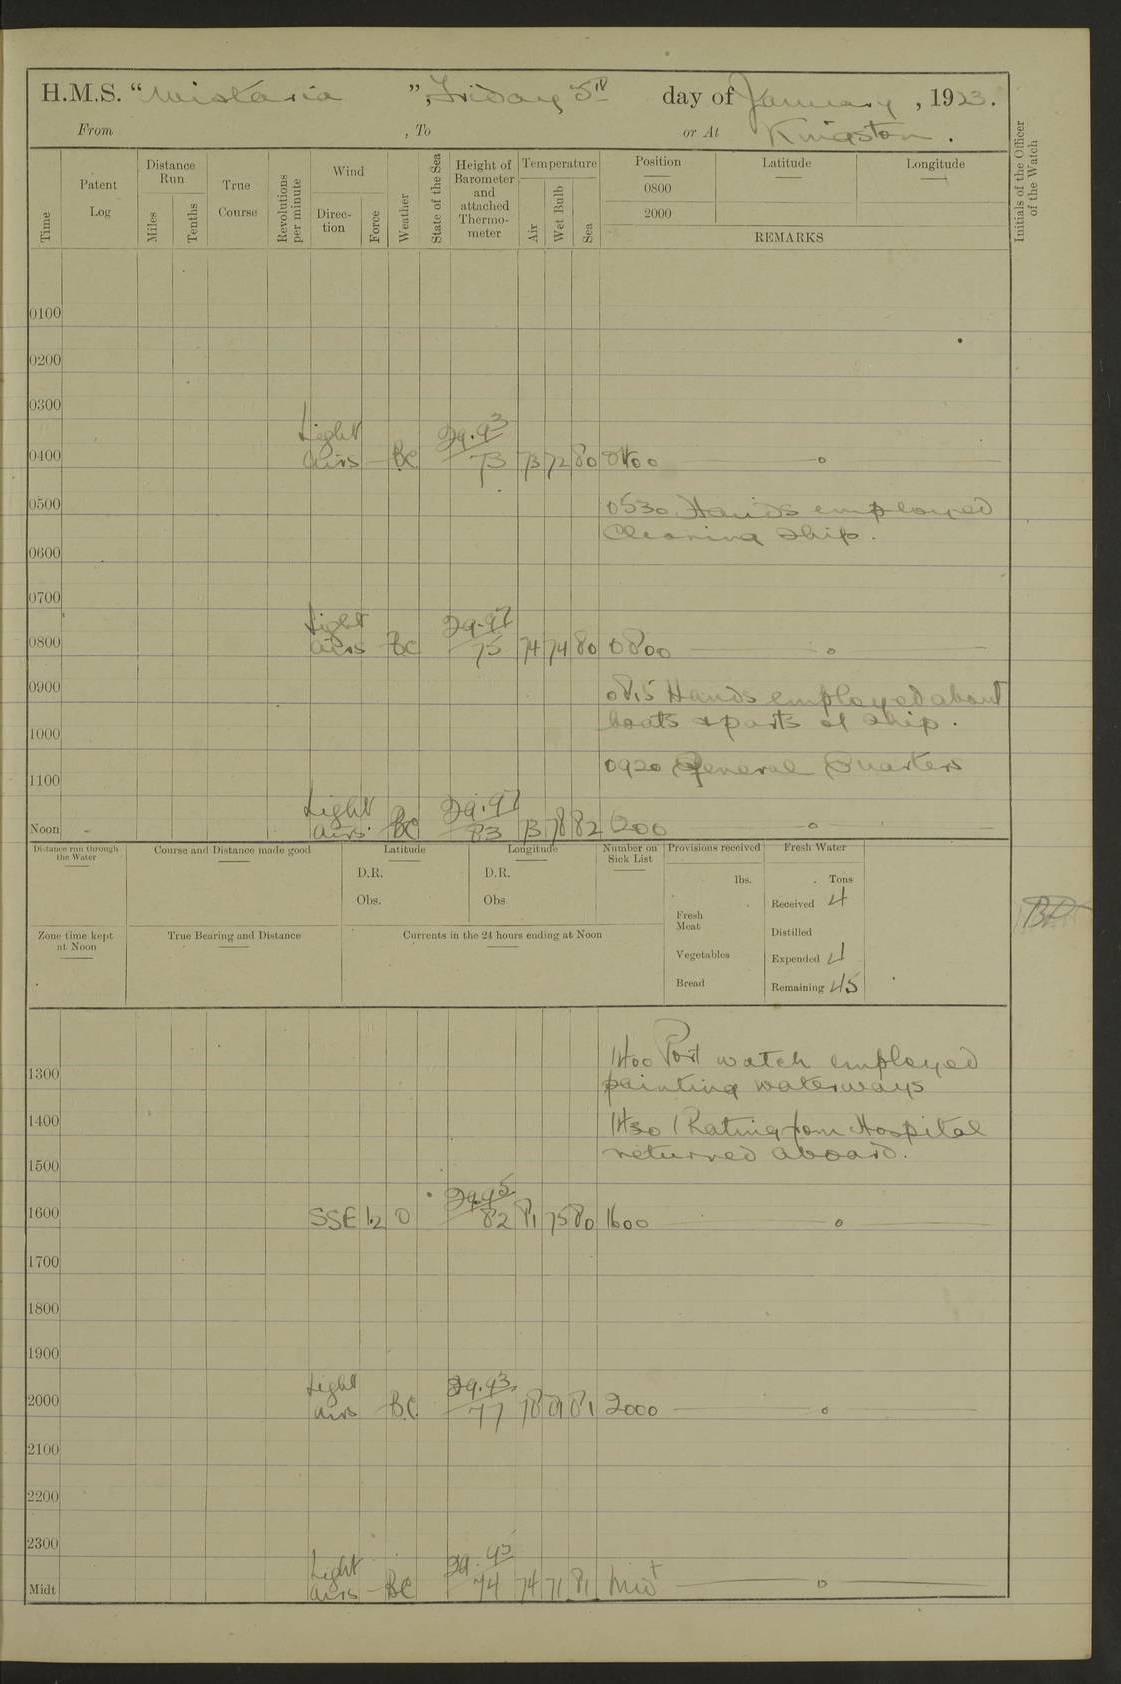 H.M.S. "Wistaria", Friday, 5th day of January, 1923.
From , To or At Kingston.
Initials of the Officer of the Watch
Time
Patent Log
Distance Run
Miles
Tenths
True Course
Revolutions per minute
Wind
Direction
Force
Weather
State of the Sea
Height of Barometer and attached Thermometer
Temperature
Air
Wet Bulb
Sea
Position Latitude Longitude
0800
2000
REMARKS
0100
0200
0300
Light 29.93
0400 airs - BC 73 73 72 80 0400
0500 0530 Hands employed
Cleaning ship.
0600
0700
Light 29.97
0800 airs - BC 75 74 74 80 0800
0900 0815 Hands employed about
boats & parts of ship.
1000
0920 General Quarters
1100
Light 29.97
Noon airs BC 83 78 82 1200
Distance run through the Water
Course and Distance made good
Latitude
D.R.
Obs.
Longitude
D.R.
Obs
Number on Sick List
Provisions received
lbs.
Fresh Meat
Vegetables
Bread
Fresh Water
Tons
Received 4
Distilled
Expended 4
Remaining 45
Zone time kept at Noon
True Bearing and Distance
Currents in the 24 hours ending at Noon
1400 Port watch employed
1300 painting waterways
1400 1430 1 Rating from Hospital
returned aboard.
1500
29.95
1600 SSE 1.2 O 82 81 75 80 1600
1700
1800
1900
Light 29.93
2000 airs - B.C. 77 78 81 2000
2100
2200
2300
Light 29.95
Midt airs - BC 74 74 71 81 Midt